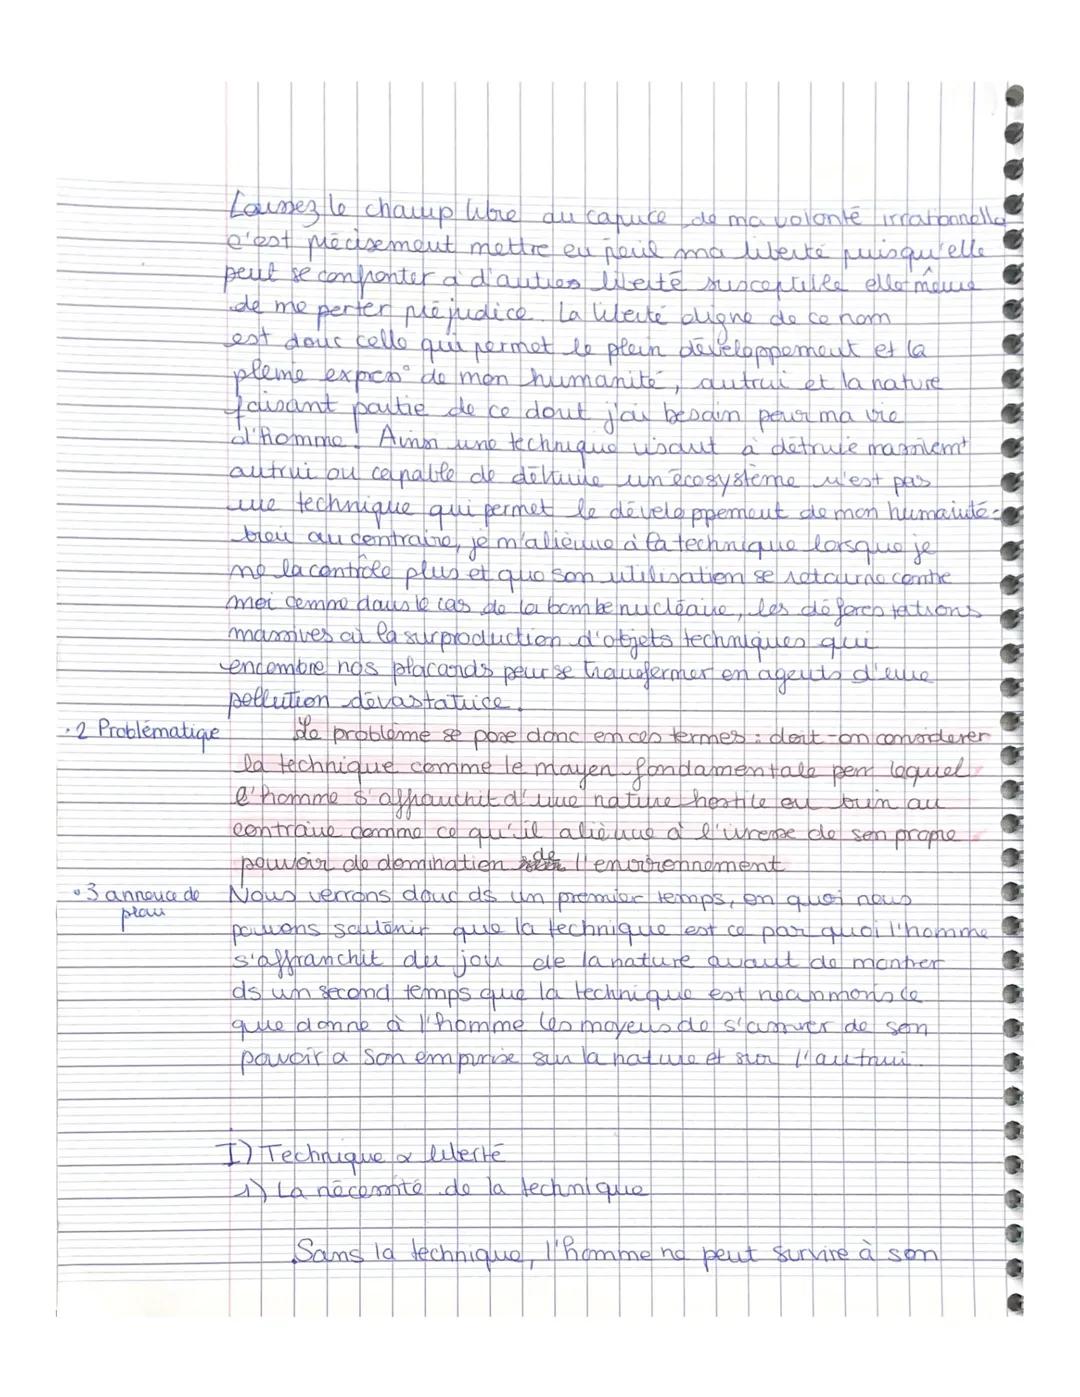 Laissez le champ libre au capuce de ma volonté irrationnelle
c'est précisement mettre en péril ma liberté puisqu'elle
peut se confronter à d'autres liberté susceptible elle même
de me porter préjudice. La liberté digne de ce nom
est donc celle qui permet le plein développement et la
pleine expres° de mon humanité, autrui et la nature
faisant partie de ce dont j'ai besoin pour ma vie
d'homme. Ainsi une technique visant à détruie massivemt
autrui ou capable de détruire un écosystème n'est pas
une technique qui permet le développement de mon humanité.
bien au contraire, je m'aliène à la technique lorsque je
ne la contrôle plus et que son utilisation se retourne contre
moi comme dans le cas de la bombe nucléaire, les déforestations
massives ou la surproduction d'objets techniques qui
encombre nos placards pour se transformer en agents d'une
pollution dévastatrice.
• 2 Problématique Le problème se pose donc en ces termes : doit-on considerer
la technique comme le moyen fondamentale par lequel
l'homme s'affranchit d'une nature hostile ou bien au
contraire comme ce qu'il aliènne à l'ivresse de son propre
pouvoir de domination de l'environnement
• 3 annonce de plan Nous verrons donc ds un premier temps, en quoi nous
pouvons soutenir que la technique est ce par quoi l'homme
s'affranchit du jou de la nature avant de montrer
ds un second temps que la technique est neanmons ce
que donne à l'homme les moyens de s'assurer de son
pouvoir a son emprise sur la nature et sur l'autrui.
I) Technique & liberté
1) La nécessité de la technique
Sans la technique, l'homme ne peut survire à son